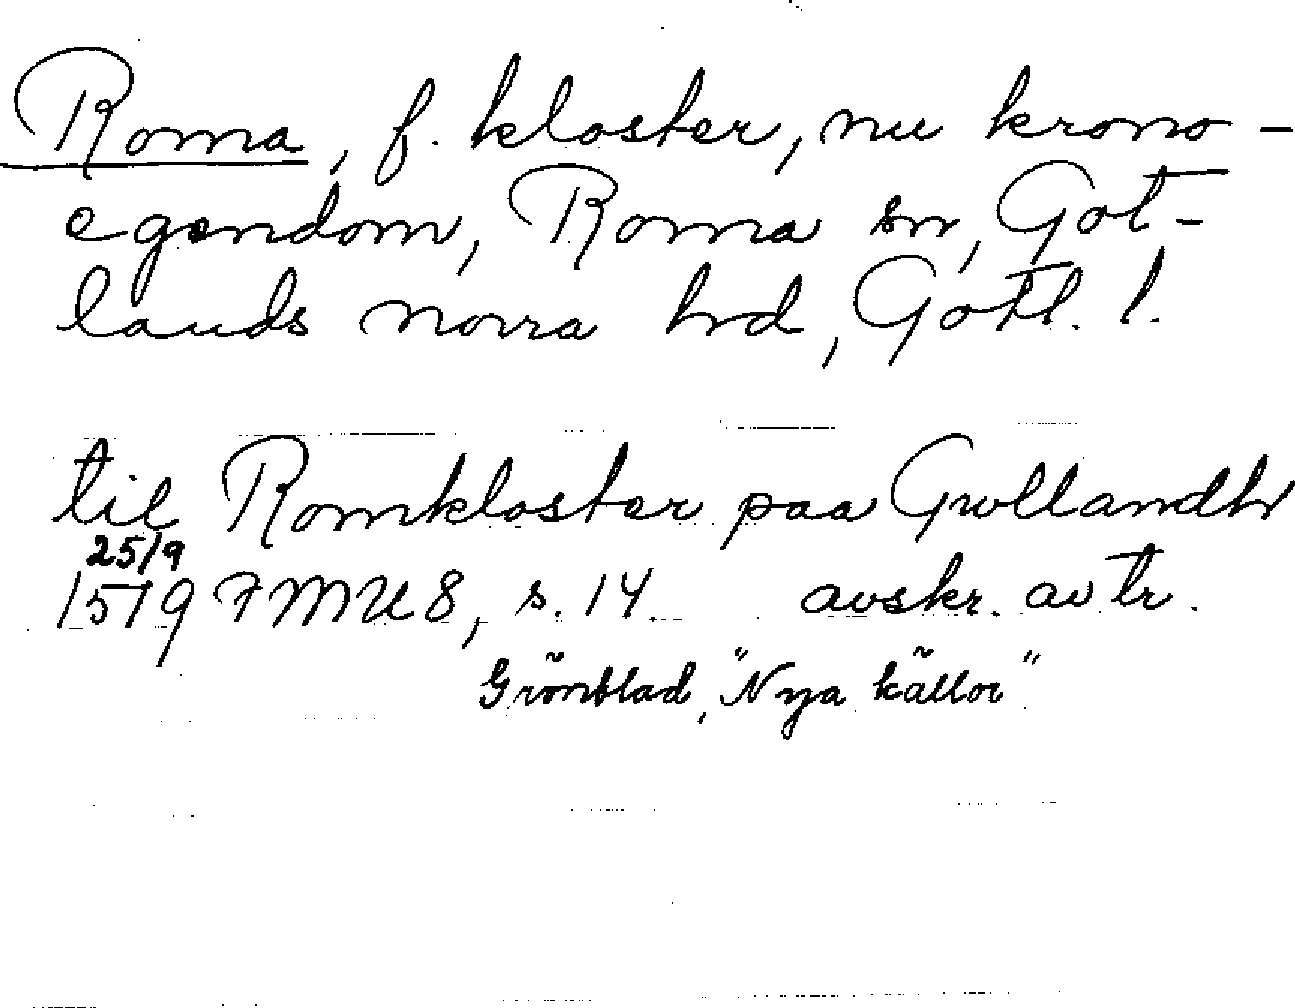 Roma, f. kloster, nu krono-
egendom, Roma sn, Got-
lands norra hrd, Gotl. l.
til Romkloster paa Gwllandh
25/9
1519 FMU 8, s. 14. avskr. av tr.
Grönblad, "Nya källor"